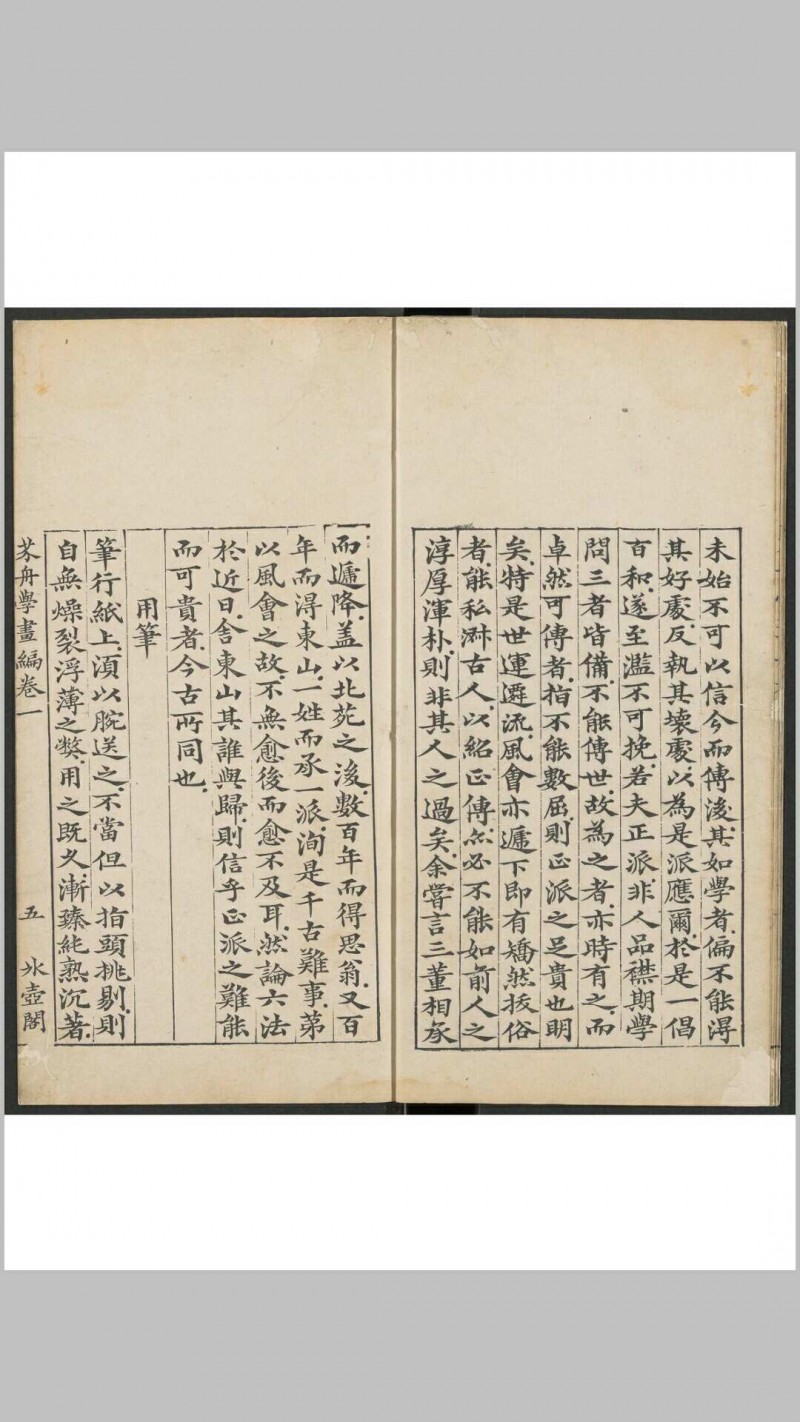 未始不可以信今而傳後其如學者偏不能得
其好處反執其壞處以為是派應爾於是一倡
百和遂至濫不可挽若夫正派非人品襟期學
問三者皆備不能傳世故為之者亦時有之而
卓然可傳者指不能數屈則正派之足貴也明
矣特是世運遷流風會亦遞下即有矯然拔俗
者能私淑古人以紹正傳亦必不能如前人之
淳厚渾朴則非其人之過矣余嘗言三董相承
而遞降蓋以北苑之後數百年而得思翁又百
年而得東山一姓而承一派洵是千古難事第
以風會之故不無愈後而愈不及耳然論六法
於近日舍東山其誰與歸則信乎正派之難能
而可貴者今古所同也
用筆
筆行紙上須以腕送之不當但以指頭挑剔則
自無燥裂浮薄之弊用之既久漸臻純熟沉著
芥舟學畫編卷一 五 氷壺閣